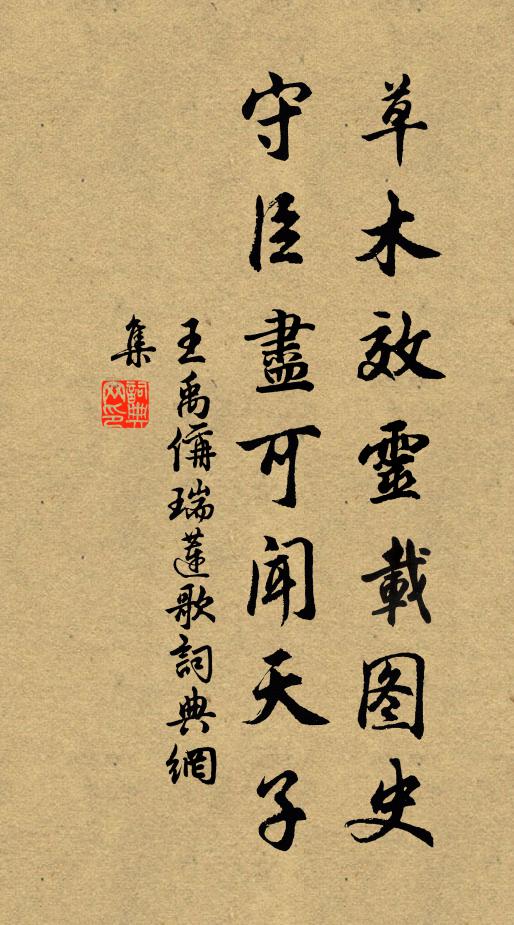 草木效靈載图史
守臣盡可闻天子
王禹偁瑞蓮歌詞典網
集
詞典网印